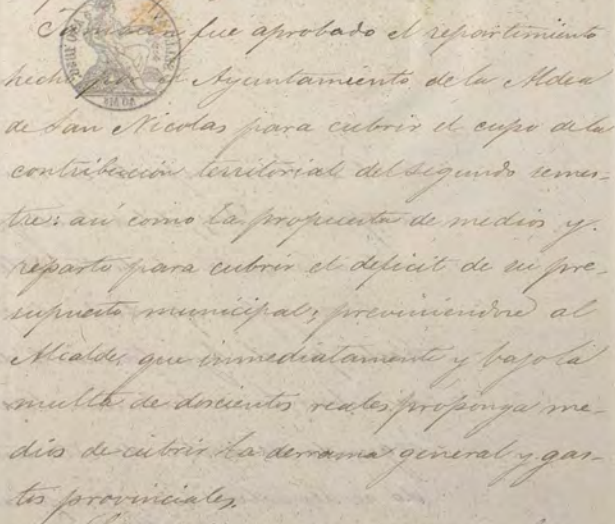 Tambien fue aprobado el repartimiento
hecho por el Ayuntamiento de la Aldea
de San Nicolas para cubrir el cupo de la
contribucion territorial del segundo semes-
tre: asi como la propuesta de medios y
reparto para cubrir el deficit de su pre-
supuesto municipal; previniendose al
Alcalde, que inmediatamente y bajo la
multa de doscientos reales proponga me-
dios de cubrir la derrama general y gas-
tos provinciales.